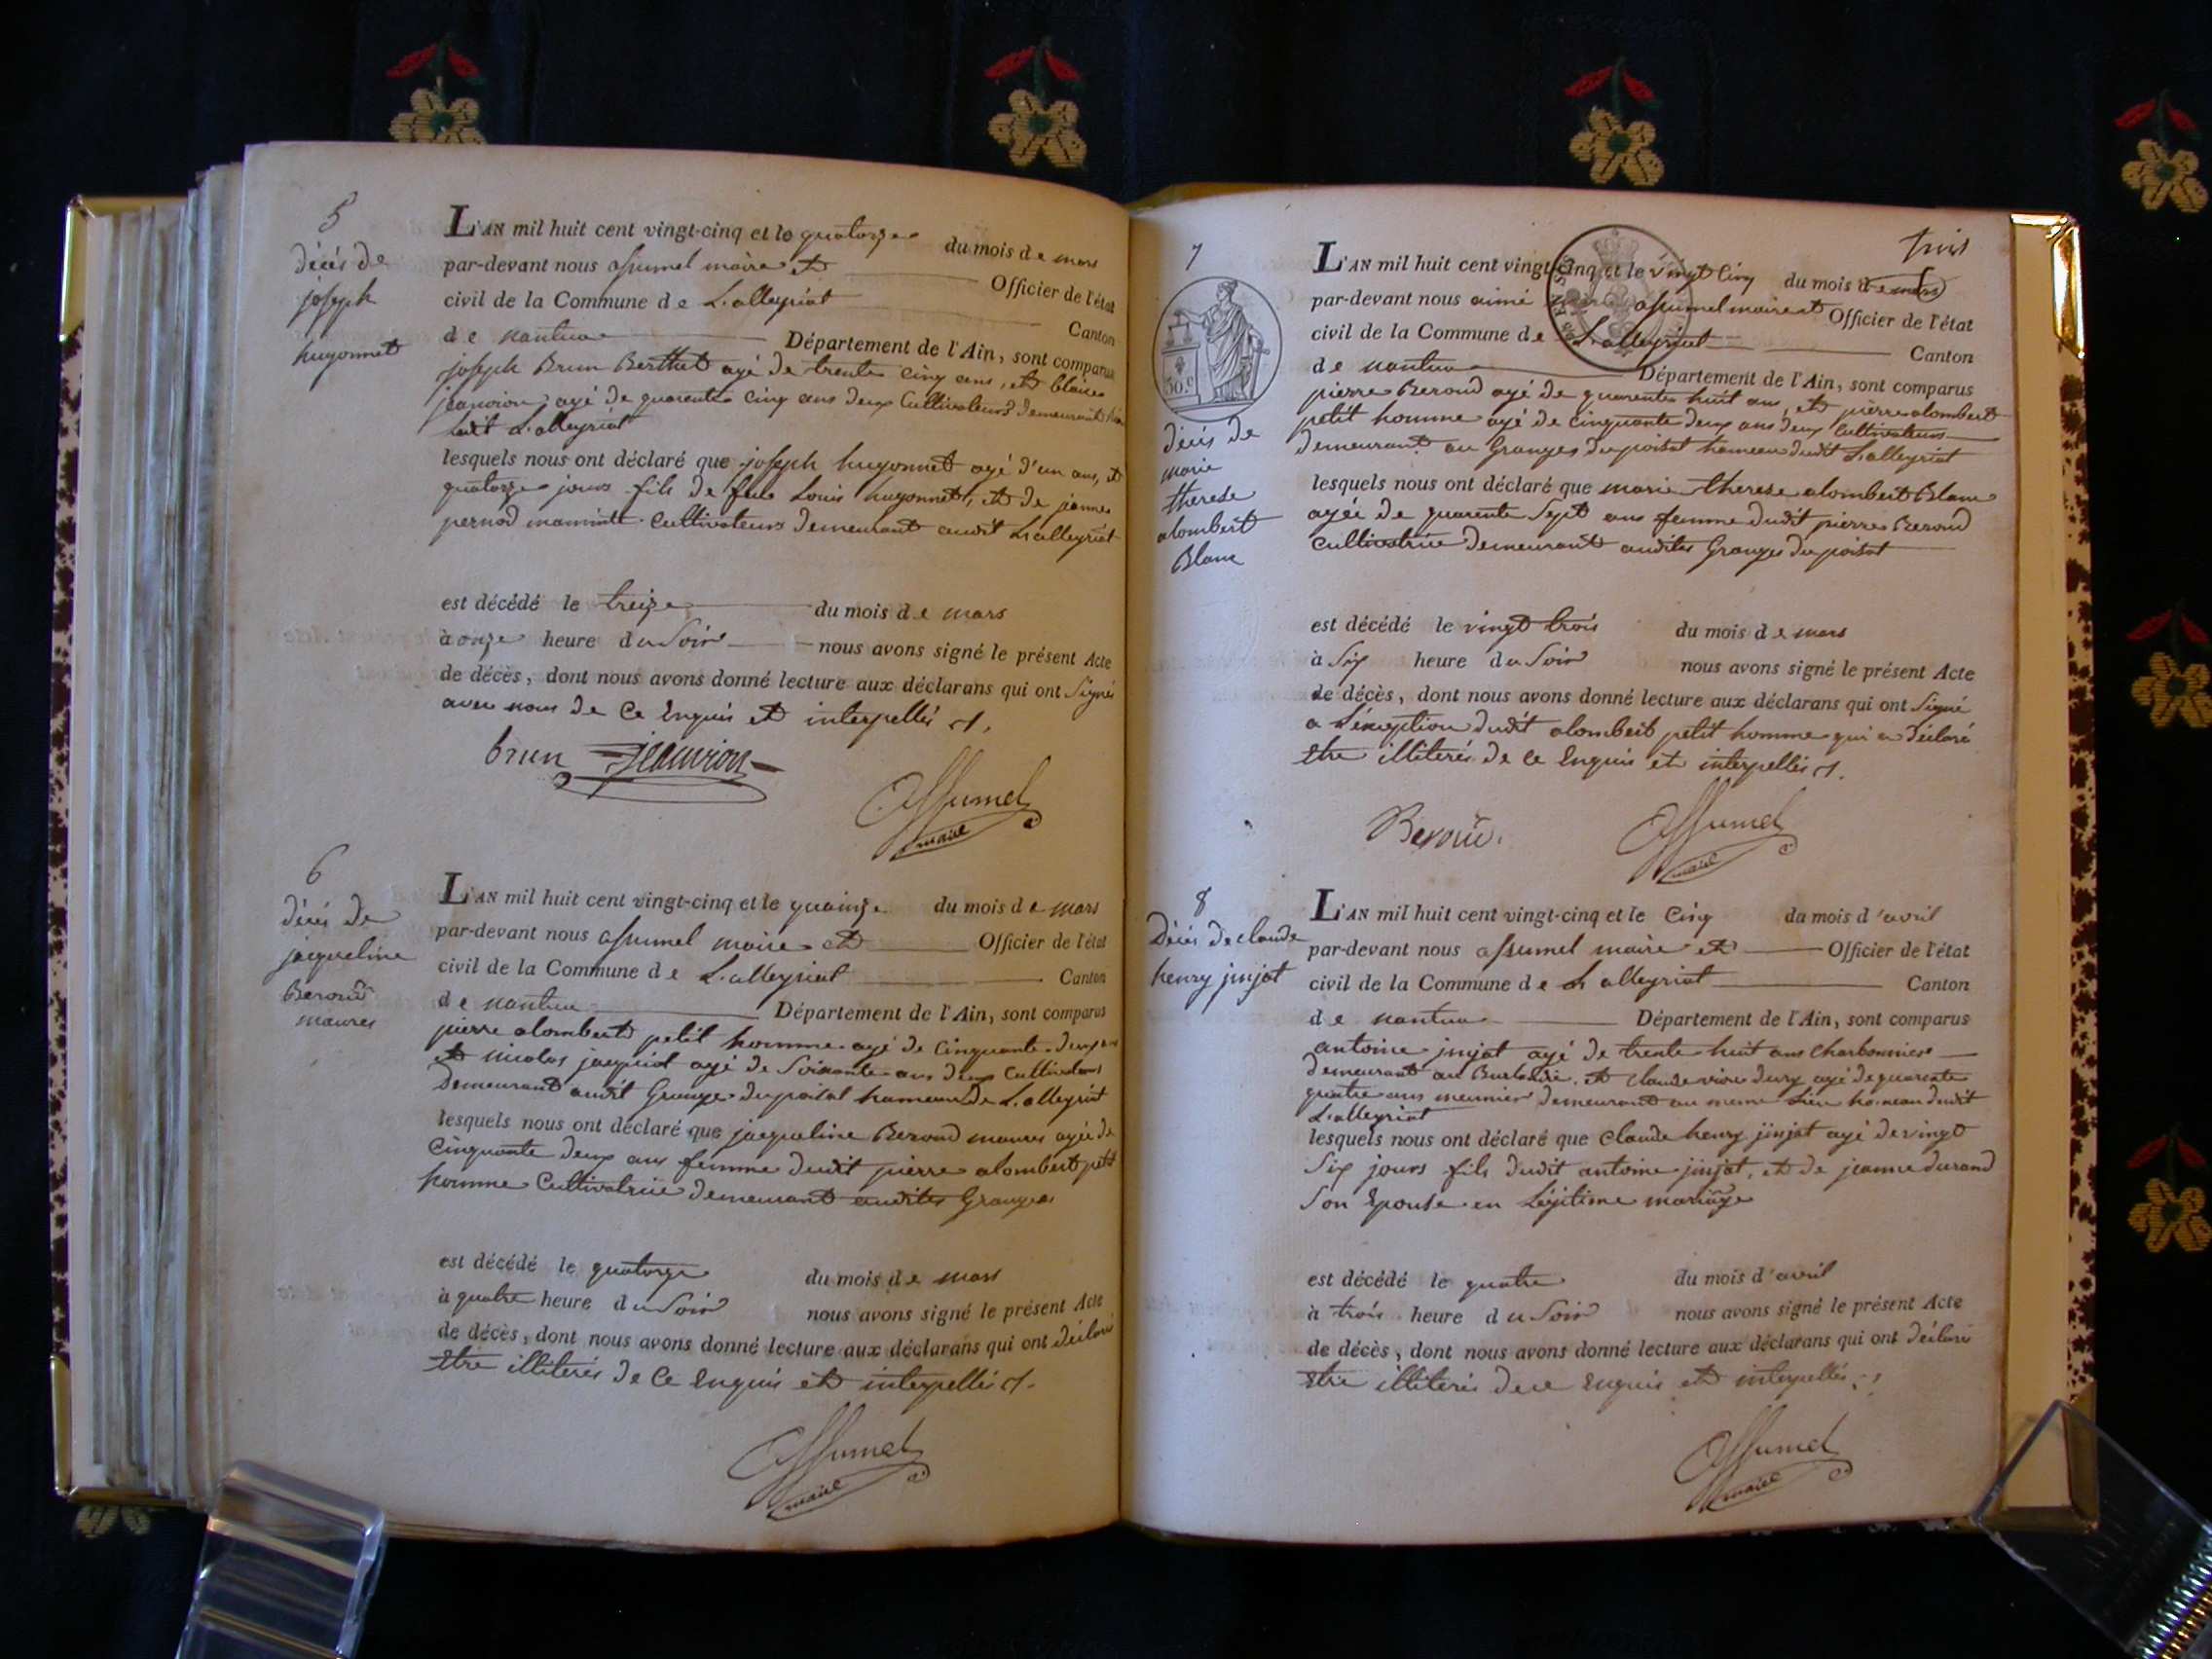 5
décès de
joseph
hugonnet
L'AN mil huit cent vingt-cinq et le quatorze du mois de mars
par-devant nous assumel maire et Officier de l'état
civil de la Commune de L'alleyriat Canton
de nantua Département de l'Ain, sont comparus
joseph Brun Berthet agé de trente cinq ans, et blaise
jeanvion agé de quarente cinq ans deux Cultivateurs demeurant
dudit L'alleyriat
lesquels nous ont déclaré que joseph hugonnet agé d'un ans, et
quatorze jours fils de feu Louis hugonnet, et de jeanne
pernod cultivateurs demeurant audit L'alleyriat
est décédé le treize du mois de mars
à onze heure du Soir nous avons signé le présent Acte
de décès, dont nous avons donné lecture aux déclarans qui ont Signé
avec nous de Ce Enquis et interpellés
brun jeanvion
Assumel
maire
6
décés de
jacqueline
Beroud
maures
L'AN mil huit cent vingt-cinq et le quainze du mois de mars
par-devant nous assumel maire et Officier de l'état
civil de la Commune de L'alleyriat Canton
de nantua Département de l'Ain, sont comparus
pierre alombert petit homme agé de Cinquante deux ans
et nicolas jacquiot agé de Soixante ans deux Cultivateurs
demeurant audit Grange du poisat hameau de L'alleyriat
lesquels nous ont déclaré que jacqueline Beroud maures agée de
Cinquante deux ans femme dudit pierre alombert petit
homme Cultivatrice demeurant audites Granges
est décédé le quatorze du mois de mars
à quatre heure du Soir nous avons signé le présent Acte
de décès, dont nous avons donné lecture aux déclarans qui ont déclaré
etre illiterés de Ce Enquis et interpellés
Assumel
maire
trois
7
50.c
décés de
marie
therese
alombert
Blanc
L'AN mil huit cent vingt-cinq et le vingt Cinq du mois de mars
par-devant nous aimé assumel maire et Officier de l'état
civil de la Commune de L'alleyriat Canton
de nantua Département de l'Ain, sont comparus
pierre Beroud agé de quarente huit ans, et pierre alombert
petit homme agé de Cinquante deux ans deux Cultivateurs
demeurant au Granges du poisat hameau dudit L'alleyriat
lesquels nous ont déclaré que marie therese alombert Blanc
agéé de quarente Sept ans femme dudit pierre Beroud
Cultivatrice demeurant audites Granges du poisat
est décédé le vingt trois du mois de mars
à Six heure du Soir nous avons signé le présent Acte
de décès, dont nous avons donné lecture aux déclarans qui ont Signé
a L'éxeption dudit alombert petit homme qui a déclaré
etre illiterés de Ce Enquis et interpellés
Beroud.
Assumel
maire
8
Décés de claude
henry jinjat
L'AN mil huit cent vingt-cinq et le Cinq du mois d'avril
par-devant nous assumel maire et Officier de l'état
civil de la Commune de L'alleyriat Canton
de nantua Département de l'Ain, sont comparus
antoine jinjat agé de trente huit ans Charbonnier
demeurant au et claude agé de quarente
quatre ans meunier demeurant au meme Lieu hameau dudit
L'alleyriat
lesquels nous ont déclaré que Claude henry jinjat agé de vingt
Six jours fils dudit antoine jinjat, et de jeanne durand
Son Epouse en Légitime mariage
est décédé le quatre du mois d'avril
à trois heure du Soir nous avons signé le présent Acte
de décès, dont nous avons donné lecture aux déclarans qui ont déclaré
etre illiterés de ce Enquis et interpellés
Assumel
maire